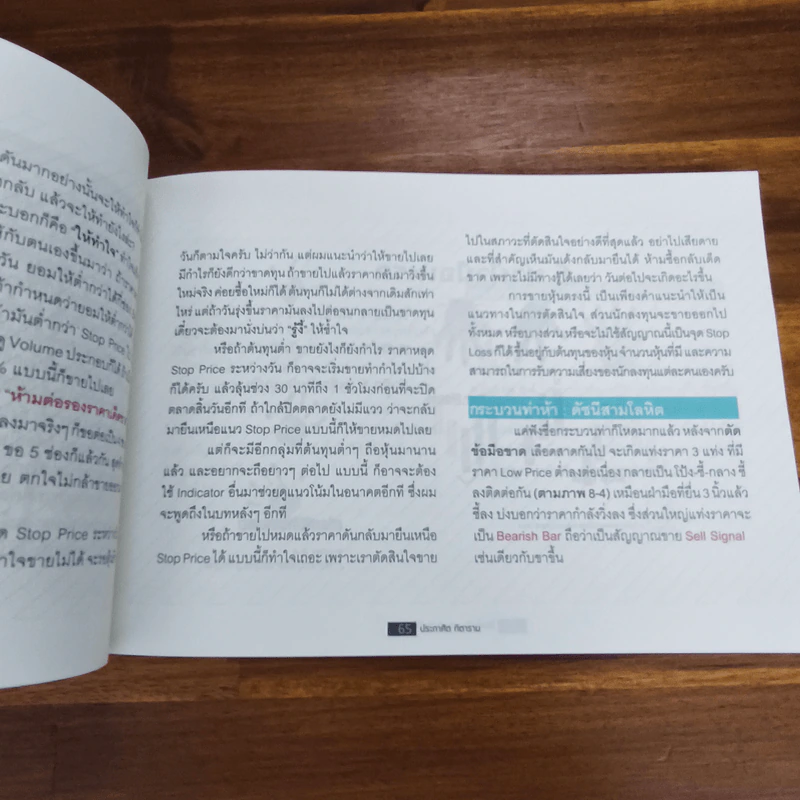 ดันมากอย่างนั้นจะให้ทำใจ
กลับ แล้วจะให้ทำยังไง
ะบอกก็คือ "ให้ทำใจ"
ห้กับตนเองขึ้นมาว่า ถ้าราคา
วัน ยอมให้ต่ำกว่าได้
ากำหนดว่ายอมให้ต่ำกว่า
ามันต่ำกว่า Stop Price
Volume ประกอบก็ได้
% แบบนี้ก็ขายไปเลย
"ห้ามต่อรองราคาเด็ด
ลงมาจริงๆ ก็ขอต่อเป็น
ขอ 5 ช่องก็แล้วกัน
ย ตกใจไม่กล้าขายออก
Stop Price ระหว่าง
าใจขายไม่ได้ จะรอ
วันก็ตามใจครับ ไม่ว่ากัน แต่ผมแนะนำว่าให้ขายไปเลย
มีกำไรก็ยังดีกว่าขาดทุน ถ้าขายไปแล้วราคากลับมาวิ่งขึ้น
ใหม่จริง ค่อยซื้อใหม่ก็ได้ ต้นทุนก็ไม่ได้ต่างจากเดิมสักเท่า
ไหร่ แต่ถ้าวันรุ่งขึ้นราคามันลงไปต่อจนกลายเป็นขาดทุน
เดี๋ยวจะต้องมานั่งบ่นว่า "รู้งี้" ให้ช้ำใจ
หรือถ้าต้นทุนต่ำ ขายยังไงก็ยังกำไร ราคาหลุด
Stop Price ระหว่างวัน ก็อาจจะเริ่มขายทำกำไรไปบ้าง
ก็ได้ครับ แล้วลุ้นช่วง 30 นาทีถึง 1 ชั่วโมงก่อนที่จะปิด
ตลาดสิ้นวันอีกที ถ้าใกล้ปิดตลาดยังไม่มีแวว ว่าจะกลับ
มายืนเหนือแนว Stop Price แบบนี้ก็ให้ขายหมดไปเลย
แต่ก็จะมีอีกกลุ่มที่ต้นทุนต่ำๆ ถือหุ้นมานาน
แล้ว และอยากจะถือยาวๆ ต่อไป แบบนี้ ก็อาจจะต้อง
ใช้ Indicator อื่นมาช่วยดูแนวโน้มในอนาคตอีกที ซึ่งผม
จะพูดถึงในบทหลังๆ อีกที
หรือถ้าขายไปหมดแล้วราคาดันกลับมายืนเหนือ
Stop Price ได้ แบบนี้ก็ทำใจเถอะ เพราะเราตัดสินใจขาย
ไปในสภาวะที่ตัดสินใจอย่างดีที่สุดแล้ว อย่าไปเสียดาย
และที่สำคัญเห็นมันเด้งกลับมายืนได้ ห้ามซื้อกลับเด็ด
ขาด เพราะไม่มีทางรู้ได้เลยว่า วันต่อไปจะเกิดอะไรขึ้น
การขายหุ้นตรงนี้ เป็นเพียงคำแนะนำให้เป็น
แนวทางในการตัดสินใจ ส่วนนักลงทุนจะขายออกไป
ทั้งหมด หรือบางส่วน หรือจะไม่ใช้สัญญาณนี้เป็นจุด Stop
Loss ก็ได้ ขึ้นอยู่กับต้นทุนของหุ้น จำนวนหุ้นที่มี และความ
สามารถในการรับความเสี่ยงของนักลงทุนแต่ละคนครับ
กระบวนท่าห้า ดัชนีสามโลหิต
แค่ฟังชื่อกระบวนท่าก็โหดมากแล้ว หลังจากตัด
ข้อมือขาด เลือดสาดกันไป จะเกิดแท่งราคา 3 แท่ง ที่มี
ราคา Low Price ต่ำลงต่อเนื่อง กลายเป็น โป้ง-ชี้-กลาง ชี้
ลงติดต่อกัน (ตามภาพ 8-4) เหมือนฝ่ามือที่ยื่น 3 นิ้วแล้ว
ชี้ลง บ่งบอกว่าราคากำลังวิ่งลง ซึ่งส่วนใหญ่แท่งราคาจะ
เป็น Bearish Bar ถือว่าเป็นสัญญาณขาย Sell Signal
เช่นเดียวกับขาขึ้น
65 ประกาศิต ทิตาราม